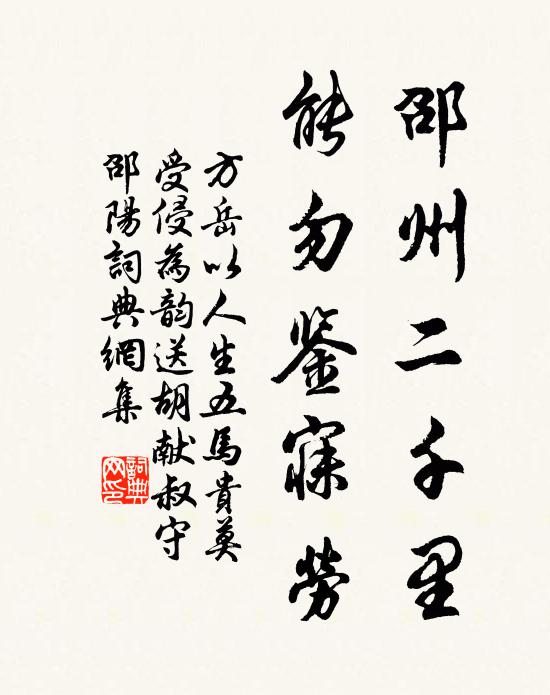 邵州二千里
能勿鉴寐劳
方岳以人生五馬貴莫
受侵為韵送胡献叔守
邵陽詞典網集
詞典网印